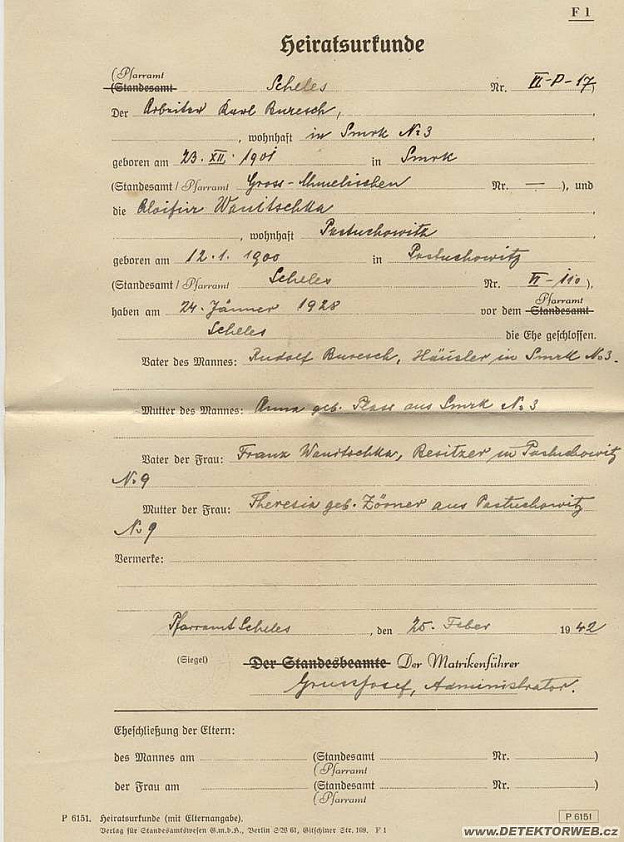 F 1
Heiratsurkunde
(Pfarramt
(Standesamt Scheles Nr. VI-P-17)
Der Arbeiter Karl Buresch,
, wohnhaft in Smrk No 3
geboren am 23. XII. 1901 in Smrk
(Standesamt / Pfarramt Gross-Chmelischen Nr. — ), und
die Aloisia Wanitschka
, wohnhaft Pastuchowitz
geboren am 12. 1. 1900 in Pastuchowitz
(Standesamt / Pfarramt Scheles Nr. VI-110 ),
Pfarramt
haben am 24. Jänner 1928 vor dem Standesamt
Scheles die Ehe geschlossen.
Vater des Mannes: Rudolf Buresch, Häusler in Smrk No 3.
Mutter des Mannes: Anna geb. Plass aus Smrk No 3
Vater der Frau: Franz Wanitschka, Besitzer in Pastuchowitz
No 9
Mutter der Frau: Theresia geb. Zörner aus Pastuchowitz
No 9
Vermerke:
Pfarramt Scheles, den 25. Feber 1942
(Siegel) Der Standesbeamte Der Matrikenführer
Josef, Administrator.
Eheschließung der Eltern:
des Mannes am (Standesamt Nr. )
(Pfarramt
der Frau am (Standesamt Nr. )
(Pfarramt
P 6151. Heiratsurkunde (mit Elternangabe). P 6151
Verlag für Standesamtswesen G.m.b.H., Berlin SW 61, Gitschiner Str. 109. F 1
www.DETEKTORWEB.cz